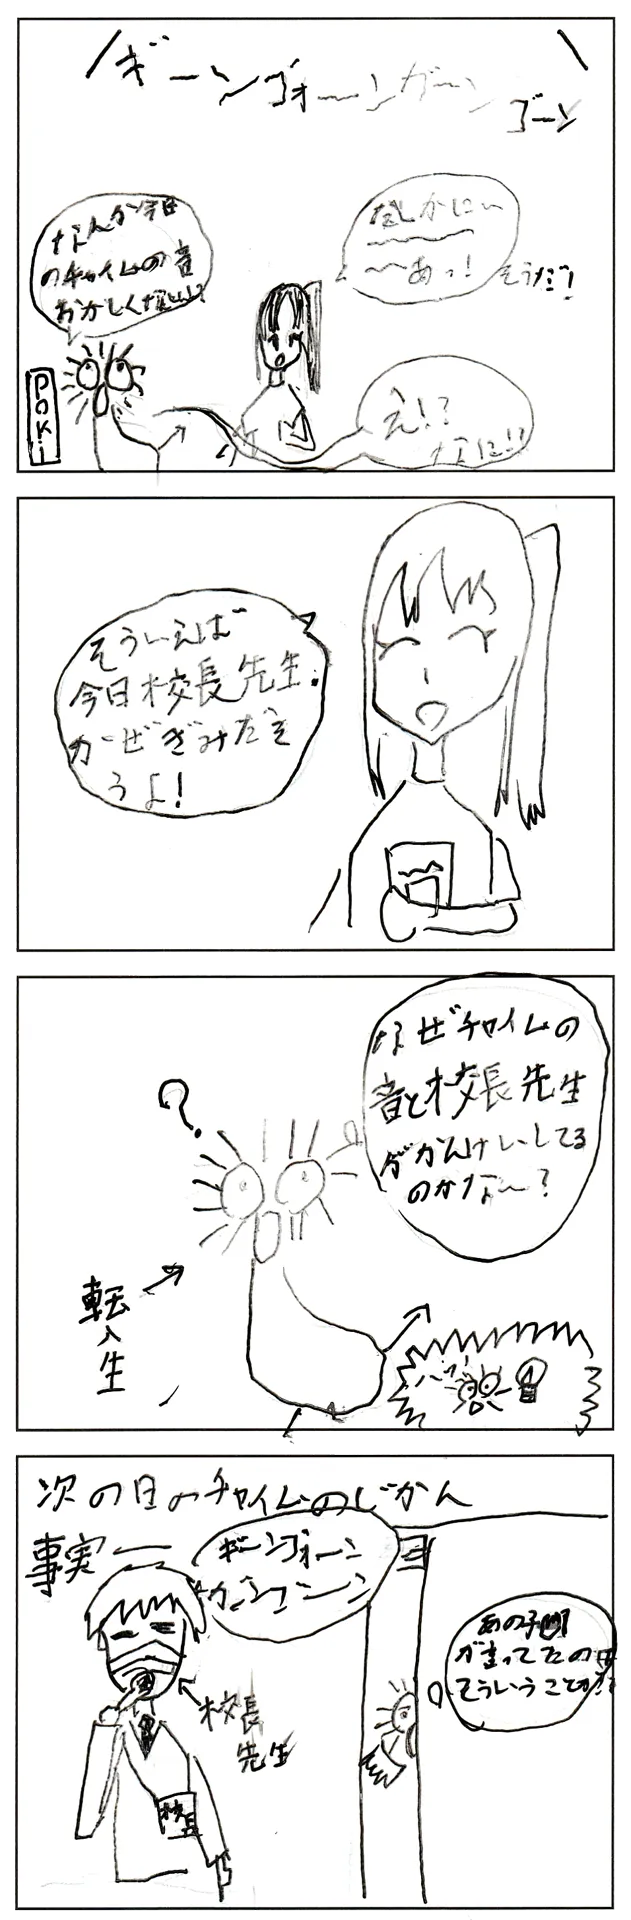 ギーンゴォーンガーンゴーン
なんか今日
のチャイムの音
おかしくない!?
たしかに〜
〜〜あっ!そうだ!
え!?
なに!?
POKi
そういえば
今日校長先生
かぜぎみだそ
うよ!
なぜチャイムの
音と校長先生
がかんけいしてる
のかな〜?
?
転入生
次の日のチャイムのじかん
事実
ギーンゴォーン
ガーンゴーン
校長
先生
校長
あの子
が言ってたのは
そういうことか!?